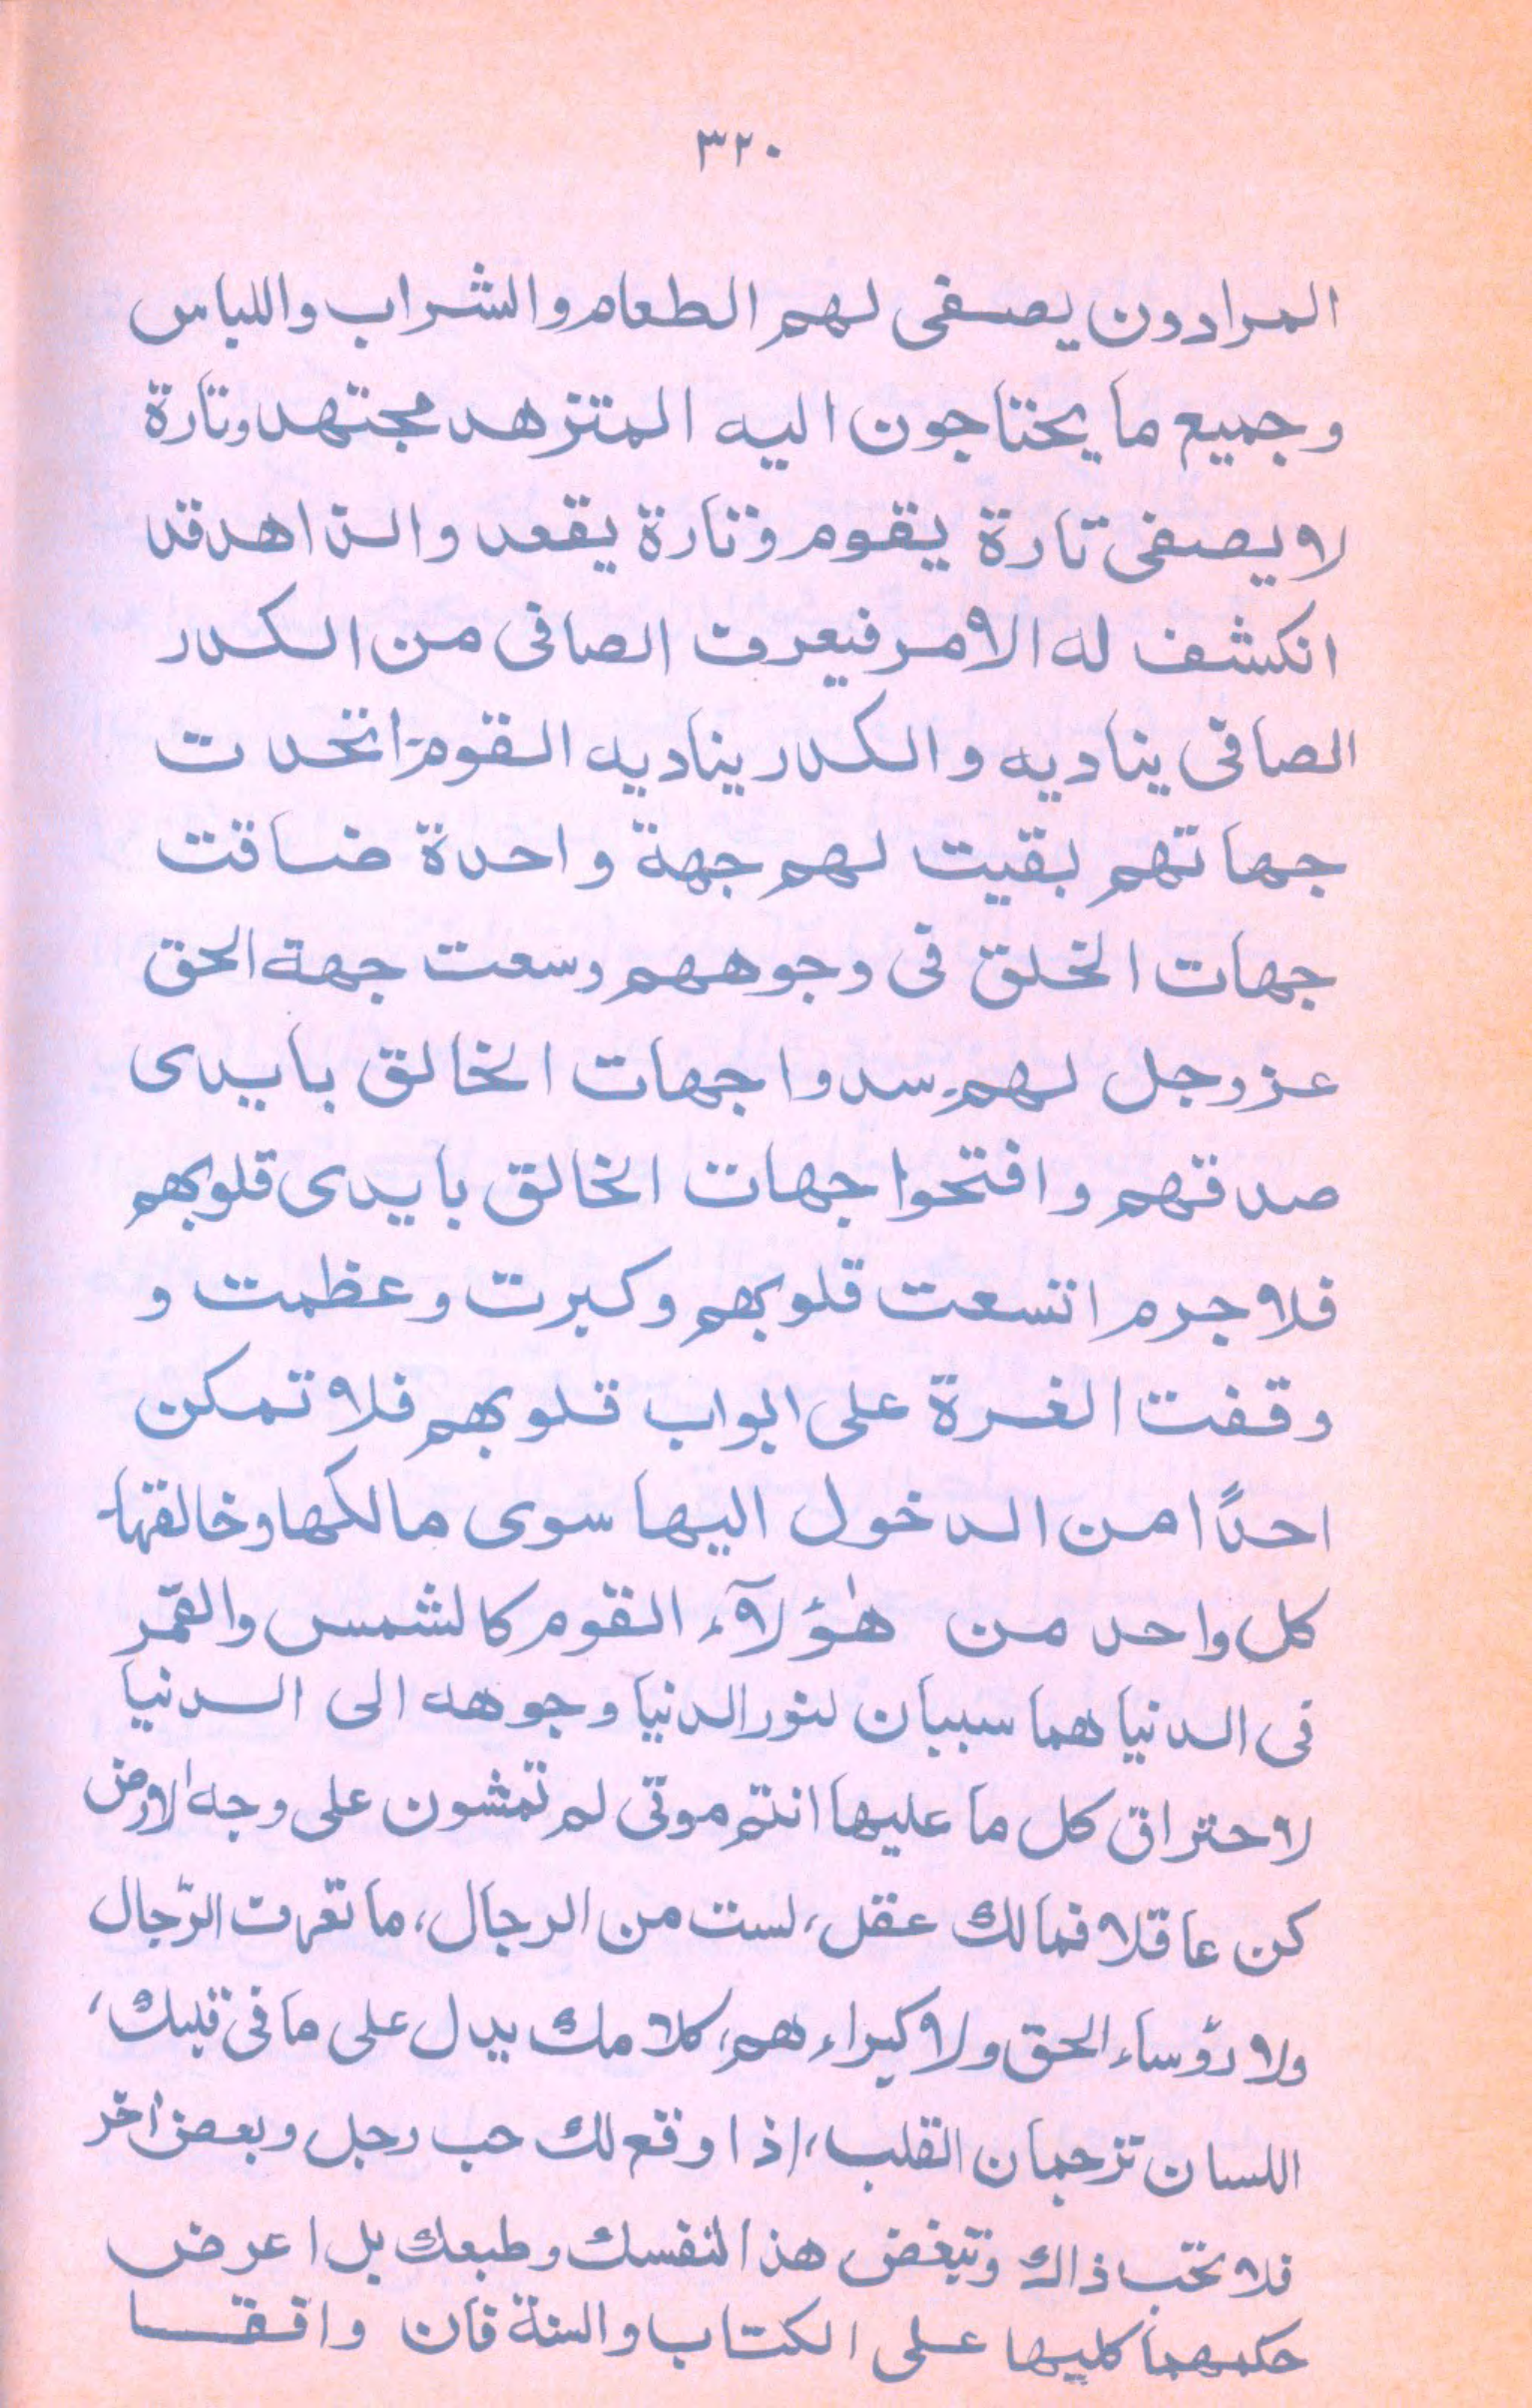 ٣٢٠
المرادون يصفى لهم الطعام والشراب واللباس
وجميع ما يحتاجون اليه المتزهد مجتهد وتارة
لا يصفى تارة يقوم وتارة يقعد والزاهد قد
انكشف له الامر فيعرف الصافى من الكدر
الصافى يناديه والكدر يناديه القوم اتحدت
جهاتهم بقيت لهم جهة واحدة ضاقت
جهات الخلق فى وجوههم وسعت جهة الحق
عز وجل لهم سدوا جهات الخالق بايدى
صدقهم وافتحوا جهات الخالق بايدى قلوبهم
فلا جرم اتسعت قلوبهم وكبرت وعظمت و
وقفت الغرة على ابواب قلوبهم فلا تمكن
احدًا من الدخول اليها سوى مالكها وخالقها
كل واحد من هٰؤلآء القوم كالشمس والقمر
فى الدنيا هما سببان لنور الدنيا وجوهه الى الدنيا
لاحتراق كل ما عليها انتم موتى لم تمشون على وجه الارض
كن عاقلا فما لك عقل، لست من الرجال، ما تعرف الرّجال
ولا رؤساء الحق ولا كبراء هم، كلامك يدل على ما فى قلبك،
اللسان ترجمان القلب، اذا وقع لك حب رجل وبعض اخر
فلا تحب ذاك وتبغض هذا لنفسك وطبعك بل اعرض
حكمهما كليها على الكتاب والسنة فان وافقا